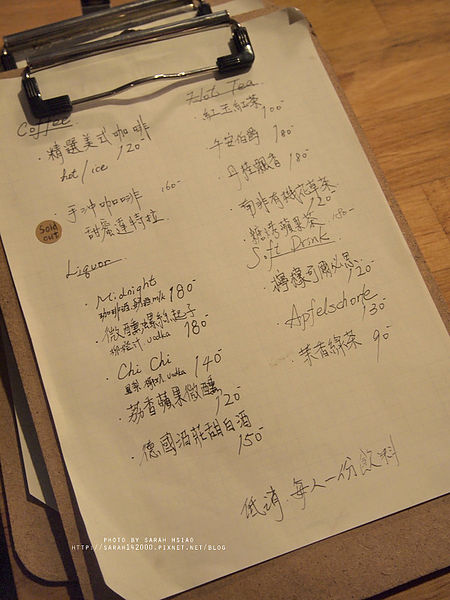 Coffee
・精選美式咖啡
hot / ice 120
・手沖咖啡 160-
甜蜜達特拉
Sold out
Liquor
・Midnight
咖啡酒 milk 180-
・微醺螺絲起子
柳橙汁. vodka 180-
・Chi Chi
鳳梨 椰奶 vodka 140-
・荔香蘋果微醺
120-
・德國酒莊甜白酒
150-
Hot Tea
・紅玉紅茶
100-
・午安伯爵
180-
・丹桂飄香 180-
・南非有機花草茶
120-
・糖烤蘋果茶 180-
Soft Drink
・檸檬可爾必思
120-
・Apfelschorle
130-
・茉香綠茶 90-
低消 每人一份飲料
PHOTO BY SARAH HSIAO
HTTP://SARAH142000.PIXNET.NET/BLOG